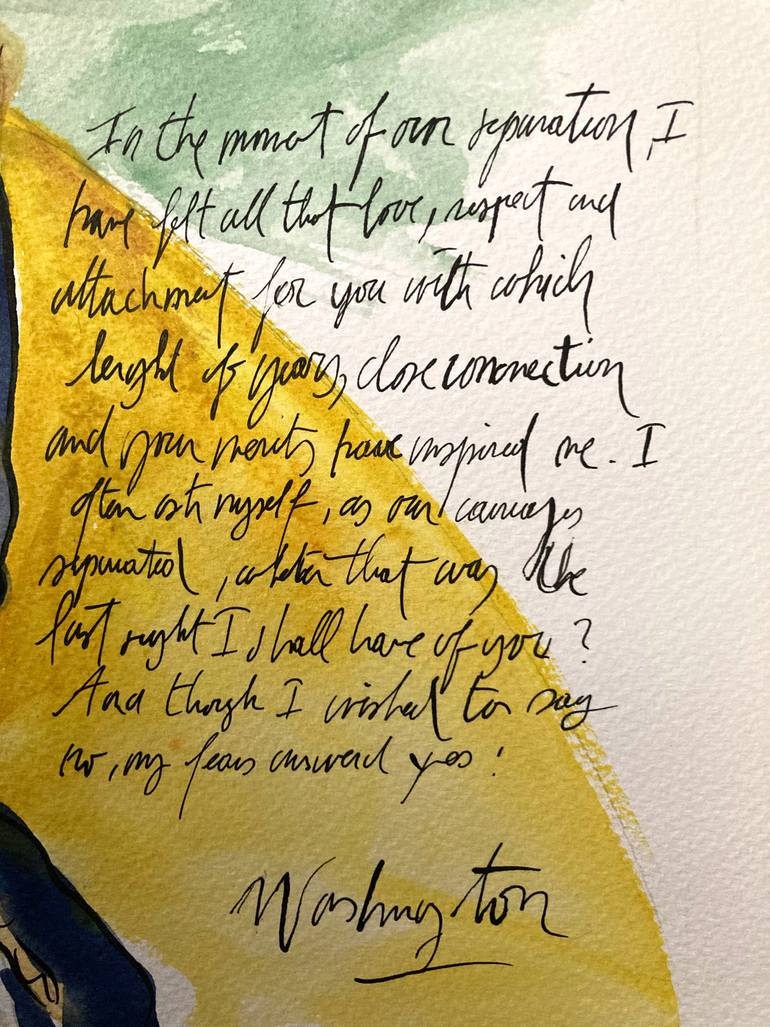 In the moment of our separation, I
have felt all that love, respect and
attachment for you with which
lenght of years, close connection
and your merits have inspired me. I
often ask myself, as our carriages
separated, whether that was the
last sight I shall have of you?
And though I wished to say
no, my fears answered yes!
Washington